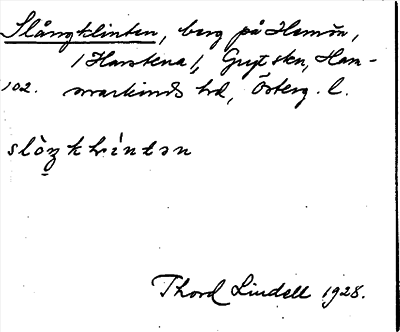 Slångklinten, berg på Hemön,
/Harstena/, Gryt skn, Ham-
102. markinds hd, Österg. l.
slòŋklìntən
Thord Lindell 1928.